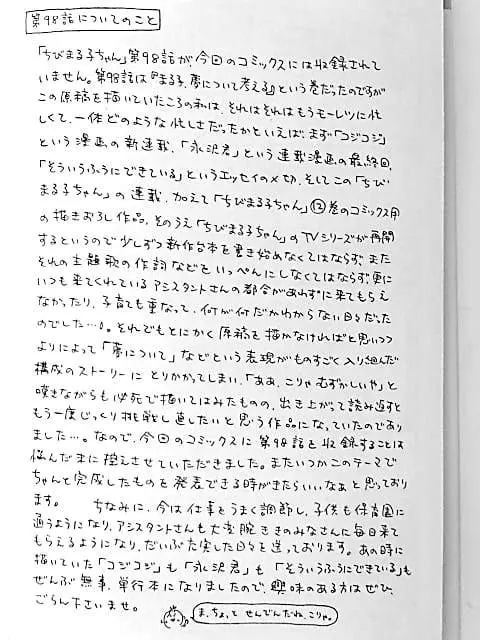 第98話についてのこと
「ちびまる子ちゃん」第98話が、今回のコミックスには収録されて
いません。第98話は『まる子、夢について考える』という巻だったのですが
この原稿を描いていたころの私は、それはそれはもうモーレツに忙
しくて、一体どのような忙しさだったかといえば、まず「コジコジ」
という漫画の新連載、「永沢君」という連載漫画の最終回、
「そういうふうにできている」というエッセイの〆切、そしてこの「ちび
まる子ちゃん」の連載、加えて「ちびまる子ちゃん」⑫巻のコミックス用
の描きおろし作品、そのうえ「ちびまる子ちゃん」のTVシリーズが再開
するというので少しずつ新作台本を書き始めなくてはならず、また
それの主題歌の作詞などをいっぺんにしなくてはならず、更に
いつも来てくれているアシスタントさんの都合があわずに来てもらえ
なかったり、子育ても重なって、何が何だかわからない日々だった
のでした…。それでもとにかく原稿を描かなければと思いつつ
よりによって「夢について」などという表現がものすごく入り組んだ
構成のストーリーにとりかかってしまい、「ああ、こりゃむずかしいや」と
嘆きながらも必死で描いてはみたものの、出き上がって読み返すと
もう一度じっくり挑戦し直したいと思う作品になっていたのであり
ました…。なので、今回のコミックスに第98話を収録することは
悩んだ末に控えさせていただきました。またいつかこのテーマで
ちゃんと完成したものを発表できる時がきたらいいなぁと思っており
ます。　ちなみに、今は仕事をうまく調節し、子供も保育園に
通うようになり、アシスタントさんも大変腕ききのみなさんに毎日来て
もらえるようになり、だいぶ充実した日々を送っております。あの時に
描いていた「コジコジ」も「永沢君」も「そういうふうにできている」も
ぜんぶ無事、単行本になりましたので、興味のある方はぜひ、
ごらん下さいませ。
ま、ちょっとせんでんだね、こりゃ。